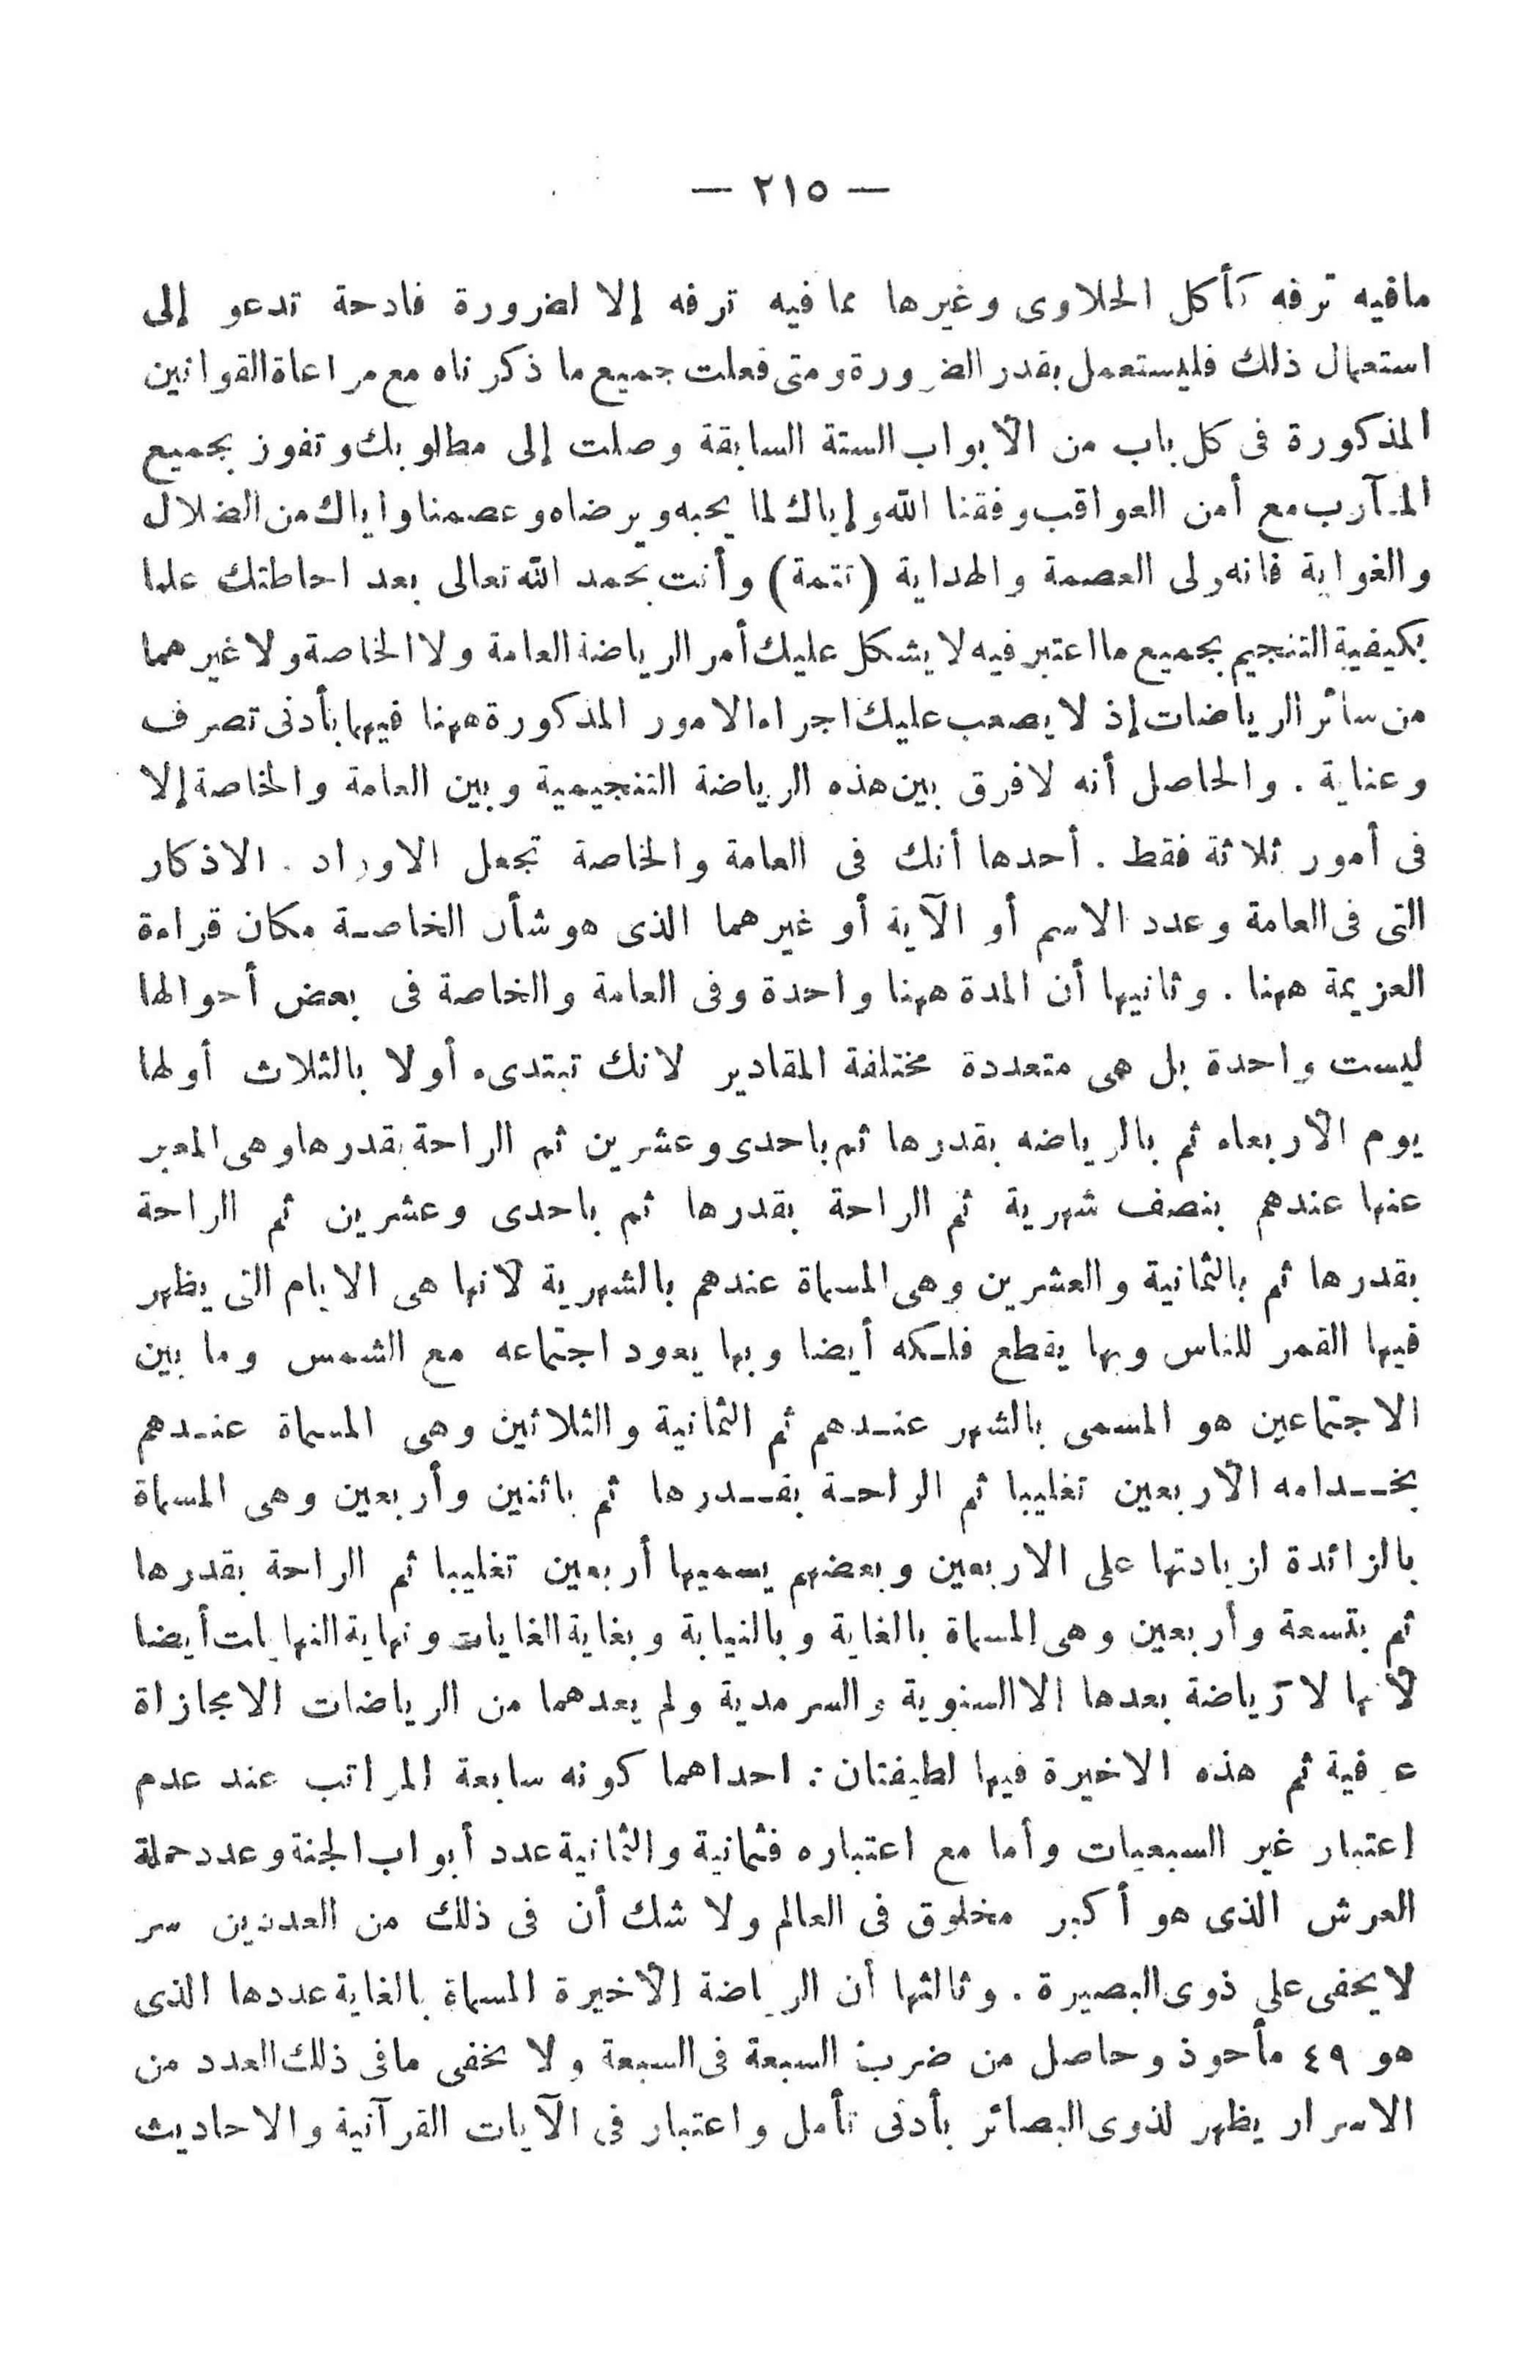 — ٢١٥ —
مافيه ترفه كأكل الحلاوى وغيرها مما فيه ترفه إلا لضرورة فادحة تدعو إلى
استعمال ذلك فليستعمل بقدر الضرورة ومتى فعلت جميع ما ذكرناه مع مراعاة القوانين
المذكورة فى كل باب من الأبواب الستة السابقة وصلت إلى مطلوبك وتفوز بجميع
المآرب مع أمن العواقب وفقنا الله وإياك لما يحبه ويرضاه وعصمنا واياك من الضلال
والغواية فانه ولى العصمة والهداية (تتمة) وأنت بحمد الله تعالى بعد احاطتك علما
بكيفية التنجيم بجميع ما اعتبر فيه لا يشكل عليك أمر الرياضة العامة ولا الخاصة ولا غيرهما
من سائر الرياضات إذ لا يصعب عليك اجراء الامور المذكورة ههنا فيهما بأدنى تصرف
وعناية . والحاصل أنه لافرق بين هذه الرياضة التنجيمية وبين العامة والخاصة إلا
فى أمور ثلاثة فقط . أحدها أنك فى العامة والخاصة تجعل الاوراد . الاذكار
التى فى العامة وعدد الاسم أو الآية أو غيرهما الذى هو شأن الخاصة مكان قراءة
العزيمة ههنا . وثانيها أن المدة ههنا واحدة وفى العامة والخاصة فى بعض أحوالها
ليست واحدة بل هى متعددة مختلفة المقادير لانك تبتدىء أولا بالثلاث أولها
يوم الأربعاء ثم بالرياضه بقدرها ثم باحدى وعشرين ثم الراحة بقدرها وهى المعبر
عنها عندهم بنصف شهرية ثم الراحة بقدرها ثم باحدى وعشرين ثم الراحة
بقدرها ثم بالثمانية والعشرين وهى المسماة عندهم بالشهرية لأنها هى الايام التى يظهر
فيها القمر للناس وبها يقطع فلكه أيضا وبها يعود اجتماعه مع الشمس وما بين
الاجتماعين هو المسمى بالشهر عندهم ثم الثمانية والثلاثين وهى المسماة عندهم
بخدامه الأربعين تغليبا ثم الراحة بقدرها ثم باثنين وأربعين وهى المسماة
بالزائدة لزيادتها على الاربعين وبعضهم يسميها أربعين تغليبا ثم الراحة بقدرها
ثم بتسعة وأربعين وهى المسماة بالغاية وبالنيابة وبغاية الغايات ونهاية النهايات أيضا
لأنها لا رياضة بعدها الا السنوية والسرمدية ولم يعدهما من الرياضات الا مجازاة
عرفية ثم هذه الاخيرة فيها لطيفتان : احداهما كونه سابعة المراتب عند عدم
اعتبار غير السبعيات وأما مع اعتباره فثمانية والثمانية عدد أبواب الجنة وعدد حملة
العرش الذى هو أكبر مخلوق فى العالم ولا شك أن فى ذلك من العددين سر
لا يخفى على ذوى البصيرة . وثالثها أن الرياضة الأخيرة المسماة بالغاية عددها الذى
هو ٤٩ مأحوذ وحاصل من ضرب السبعة فى السبعة ولا يخفى مافى ذلك العدد من
الاسرار يظهر لذوى البصائر بأدنى تأمل واعتبار فى الآيات القرآنية والاحاديث